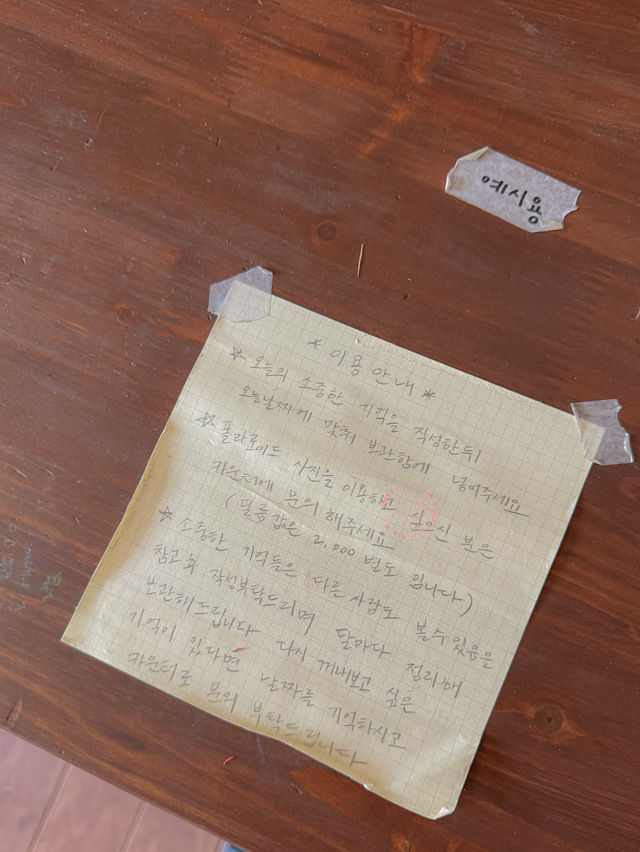 예시용
* 이용안내 *
☆ 오늘의 소중한 기억을 작성한뒤
오늘날짜에 맞춰 보관함에 넣어주세요
☆ 폴라로이드 사진을 이용하고 싶으신 분은
카운터에 문의 해주세요
(필름값은 2,000 별도 입니다)
☆ 소중한 기억들은 다른 사람도 볼수있음을
참고 후 작성부탁드리며 달마다 정리해
보관해드립니다 다시 꺼내보고 싶은
기억이 있다면 날짜를 기억하시고
카운터로 문의 부탁드립니다